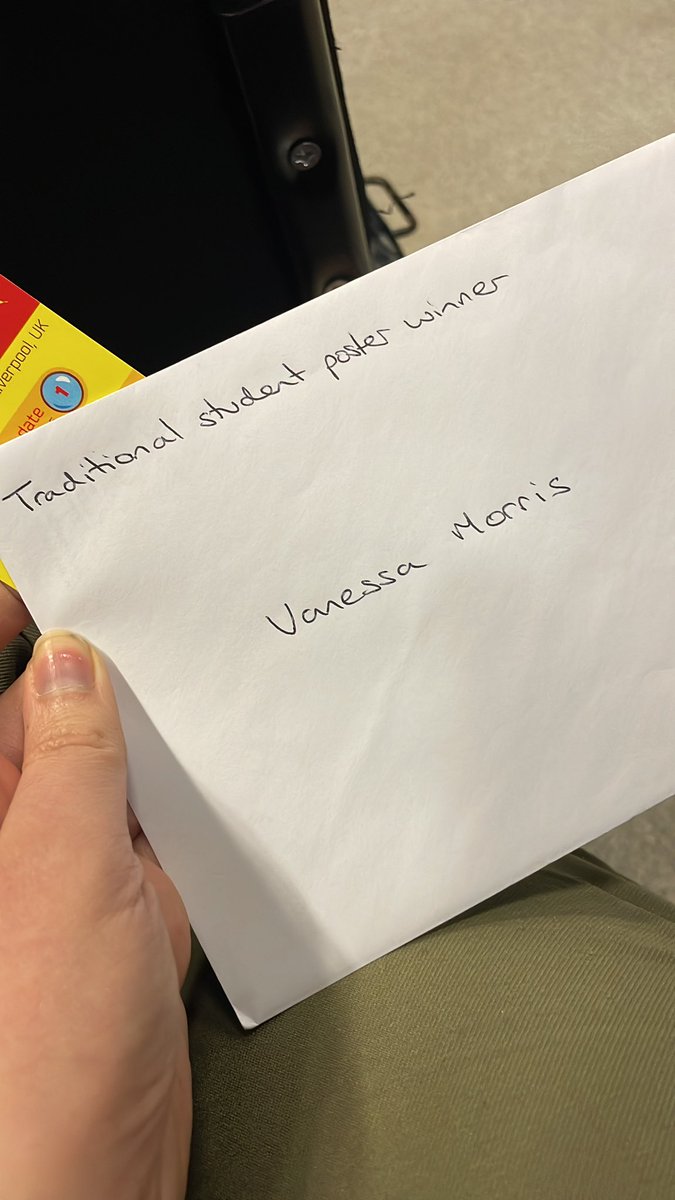 Traditional student poster winner
Vanessa Morris
verpool, UK
date
1